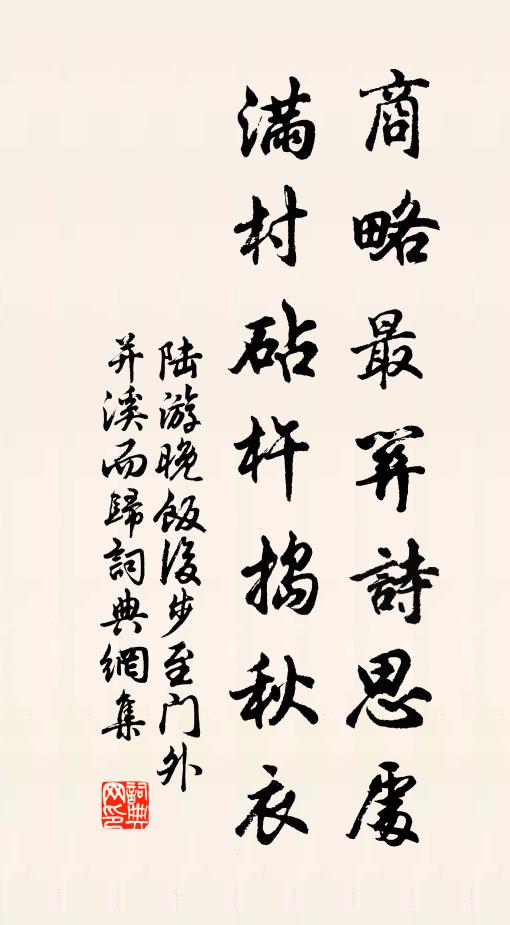 商略最關詩思處
滿村砧杵搗秋衣
陸游晚飯後步至门外
并溪而歸詞典網集
詞典网印